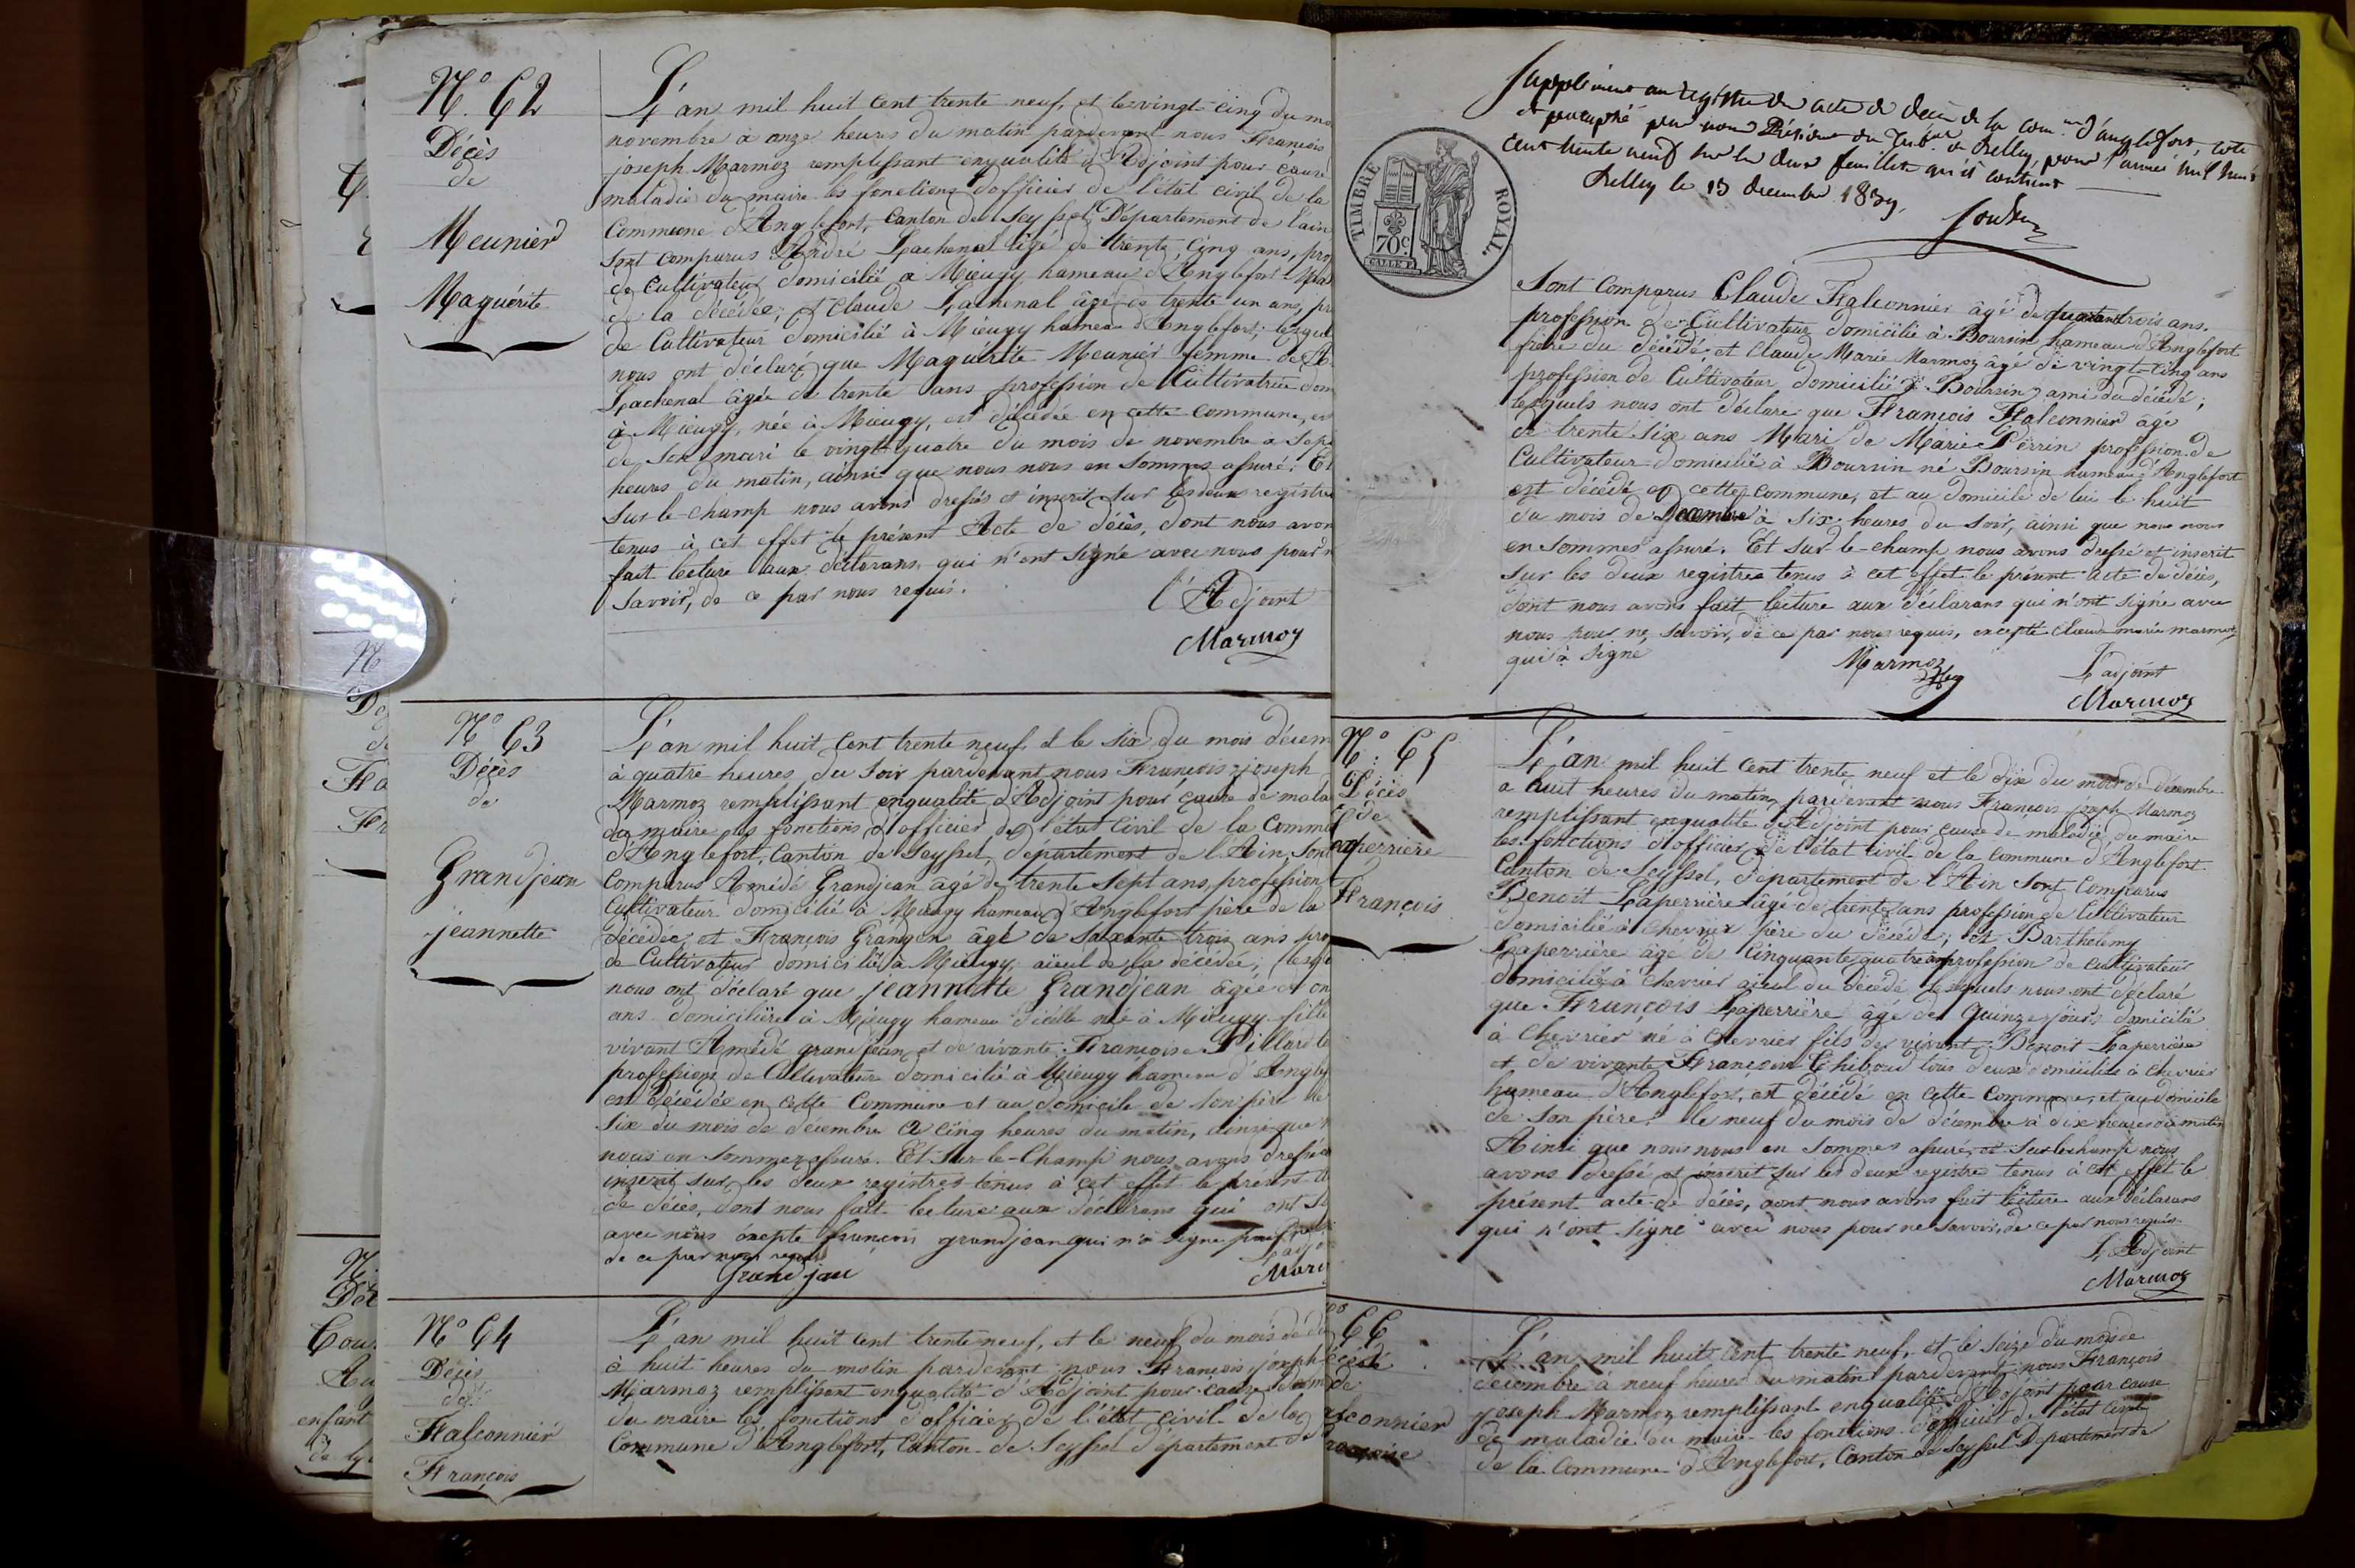 N.º 62
Décès
de
Meunier
Maguérite
L'an mil huit cent trente neuf, et le vingt-cinq du mo
novembre à onze heures du matin pardevant nous François
joseph Marmoz remplissant enqualité d'Adjoint pour cause
maladie du maire les fonctions d'officier de l'état civil de la
Commune d'Anglefort, Canton de Seyssel, Département de l'ain
Sont comparus André Lachenal âgé de trente cinq ans, pro
de Cultivateur domicilié à Mieugy hameau d'Anglefort Mari
de la décédée, et Claude Lachenal âgé de trente un ans, pr
de Cultivateur domicilié à Mieugy hameau d'Anglefort; lesquel
nous ont déclaré que Maguérite Meunier femme de A
Lachenal âgée de trente ans profession de Cultivatrice dom
à Mieugy, née à Mieugy, est décédée en cette commune, et
de son mari le vingt-quatre du mois de novembre à Sept
heures du matin, ainsi que nous nous en sommes assuré. Et
Sur-le-champ nous avons dressés et inscrit sur les deux registre
tenus à cet effet le présent Acte de décès, dont nous avon
fait lecture aux déclarans qui n'ont signé avec nous pour n
savoir, de ce par nous requis.
l'Adjoint
Marmoz
N.º 63
Décès
de
Grandjean
jeannette
L'an mil huit cent trente neuf et le six du mois décem
à quatre heures du soir pardevant nous François joseph
Marmoz remplissant enqualité d'Adjoint pour cause de mala
du maire les fonctions d'officier de l'état civil de la Commu
d'Anglefort, Canton de Seyssel, département de l'Ain, sont
Comparus Amédé Grandjean âgé de trente sept ans, profession
Cultivateur domicilié à Mieugy hameau d'Anglefort père de la
décédée, et François Grandjen âgé de Soixante trois ans pro
de Cultivateur domicilié à Mieugy, aïeul de la décédée; lesqu
nous ont déclaré que jeannette Grandjean âgée de on
ans domicilière à Mieugy hameau d'icelle née à Mieugy fille
vivant Amédé grandjean et de vivante Françoise Pillard
profession de Cultivateur domicilié à Mieugy hameau d'Anglef
est décédée en cette Commune et au domicile de son père le
six du mois de décembre à Cinq heures du matin, ainsi que
nous en sommes assuré. Et Sur-le-Champ nous avons dressé
inscrit sur les deux registres tenus à cet effet le présent
de décès, dont nous fait lecture aux déclarans qui ont si
avec nous éxepté françois grandjean qui n'a signé
de ce par nous requis
L'adjo
Grandjan
Marm
N.º 64
Décès
de
Falconnier
François
L'an mil huit cent trente neuf, et le neuf du mois de d
à huit heures du matin pardevant nous François joseph
Marmoz remplissant enqualité d'Adjoint pour cause de m
du maire les fonctions d'officier de l'état civil de la
Commune d'Anglefort, Canton de Seyssel département de
Supplément au registre des actes de décès de la com.ne d'anglefort, coté
et paraphé par nous Président du Trib.al de Belley, pour l'année mil huit
cent trente neuf sur les deux feuillets qu'il contient
Belley le 13 decembre 1839.
TIMBRE ROYAL
70c
Sont Comparus Claude Falconnier âgé de quarante trois ans.
profession de Cultivateur domicilié à Boursin hameau d'Anglefort
frère du décédé et Claude Marie Marmoz âgé de vingt-cinq ans
profession de Cultivateur domicilié à Boursin ami du décédé;
lesquels nous ont déclaré que François Falconnier âgé
de trente six ans Mari de Marie Perrin profession de
Cultivateur domicilié à Boursin né Boursin hameau d'Anglefort
est décédé en cette commune, et au domicile de lui le huit
du mois de Decembre à six heures du soir, ainsi que nous nous
en sommes assuré. Et sur-le-champ nous avons dressé et inscrit
sur les deux registres tenus à cet effet le présent acte de décès,
dont nous avons fait lecture aux déclarans qui n'ont signé avec
nous pour ne savoir, de ce par nous requis, excepté Claude marie marmoz
qui a signé
Marmoz
L'adjoint
Marmoz
N.º 65
Décès
de
Laperrière
François
L'an mil huit cent trente neuf et le dix du mois de décembre
à huit heures du matin pardevant nous François joseph Marmoz
remplissant enqualité d'Adjoint pour cause de maladie du maire
les fonctions d'officier de l'état civil de la Commune d'Anglefort
Canton de Seyssel, département de l'Ain sont Comparus
Benoit Laperrière âgé de trente ans profession de Cultivateur
domicilié à Chevrier père du décédé; et Barthelemy
Laperrière âgé de Cinquante quatre ans profession de cultivateur
domicilié à Chevrier aïeul du décédé lesquels nous ont déclaré
que François Laperrière âgé de Quinze jours domicilié
à Chevrier né à Chevrier fils de vivant Benoit Laperrière
et de vivante Françoise Thiboud tous deux domiciliés à Chevrier
hameau d'Anglefort, est décédé en cette Commune, et au domicile
de son père le neuf du mois de décembre à dix heures du matin
Ainsi que nous nous en sommes assuré, et Sur-le-champ nous
avons dressé et inscrit sur les deux registre tenus à cet effet le
présent acte de décès, dont nous avons fait lecture aux déclarans
qui n'ont signé avec nous pour ne savoir, de ce par nous requis.
L'Adjoint
Marmoz
66
écédé
de
alconnier
rançoise
L'an mil huit cent trente neuf, et le seize du mois de
décembre à neuf heures du matin pardevant nous François
joseph Marmoz remplissant enqualité d'Adjoint pour cause
de maladie du maire les fonctions d'officier de l'état civil
de la Commune d'Anglefort, Canton de Seyssel Département de